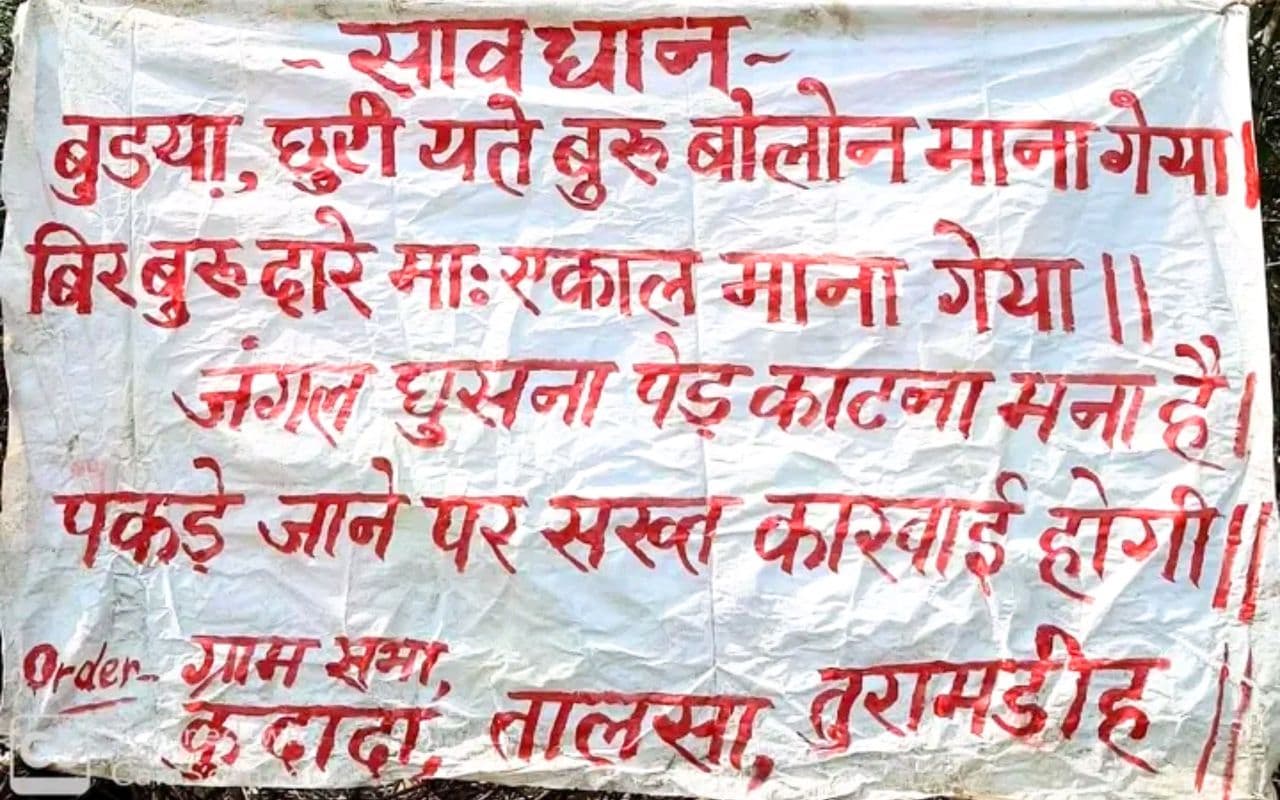 ~सावधान~
बुडया, छुरी यते बुरू बोलोन माना गेया।
बिर बुरू दारे माः एकाल माना गेया॥
जंगल घुसना पेड़ काटना मना है।
पकड़े जाने पर सख्त कारवाई होगी॥
Order- ग्राम सभा,
कुदादा, तालसा, तुरामडीह॥